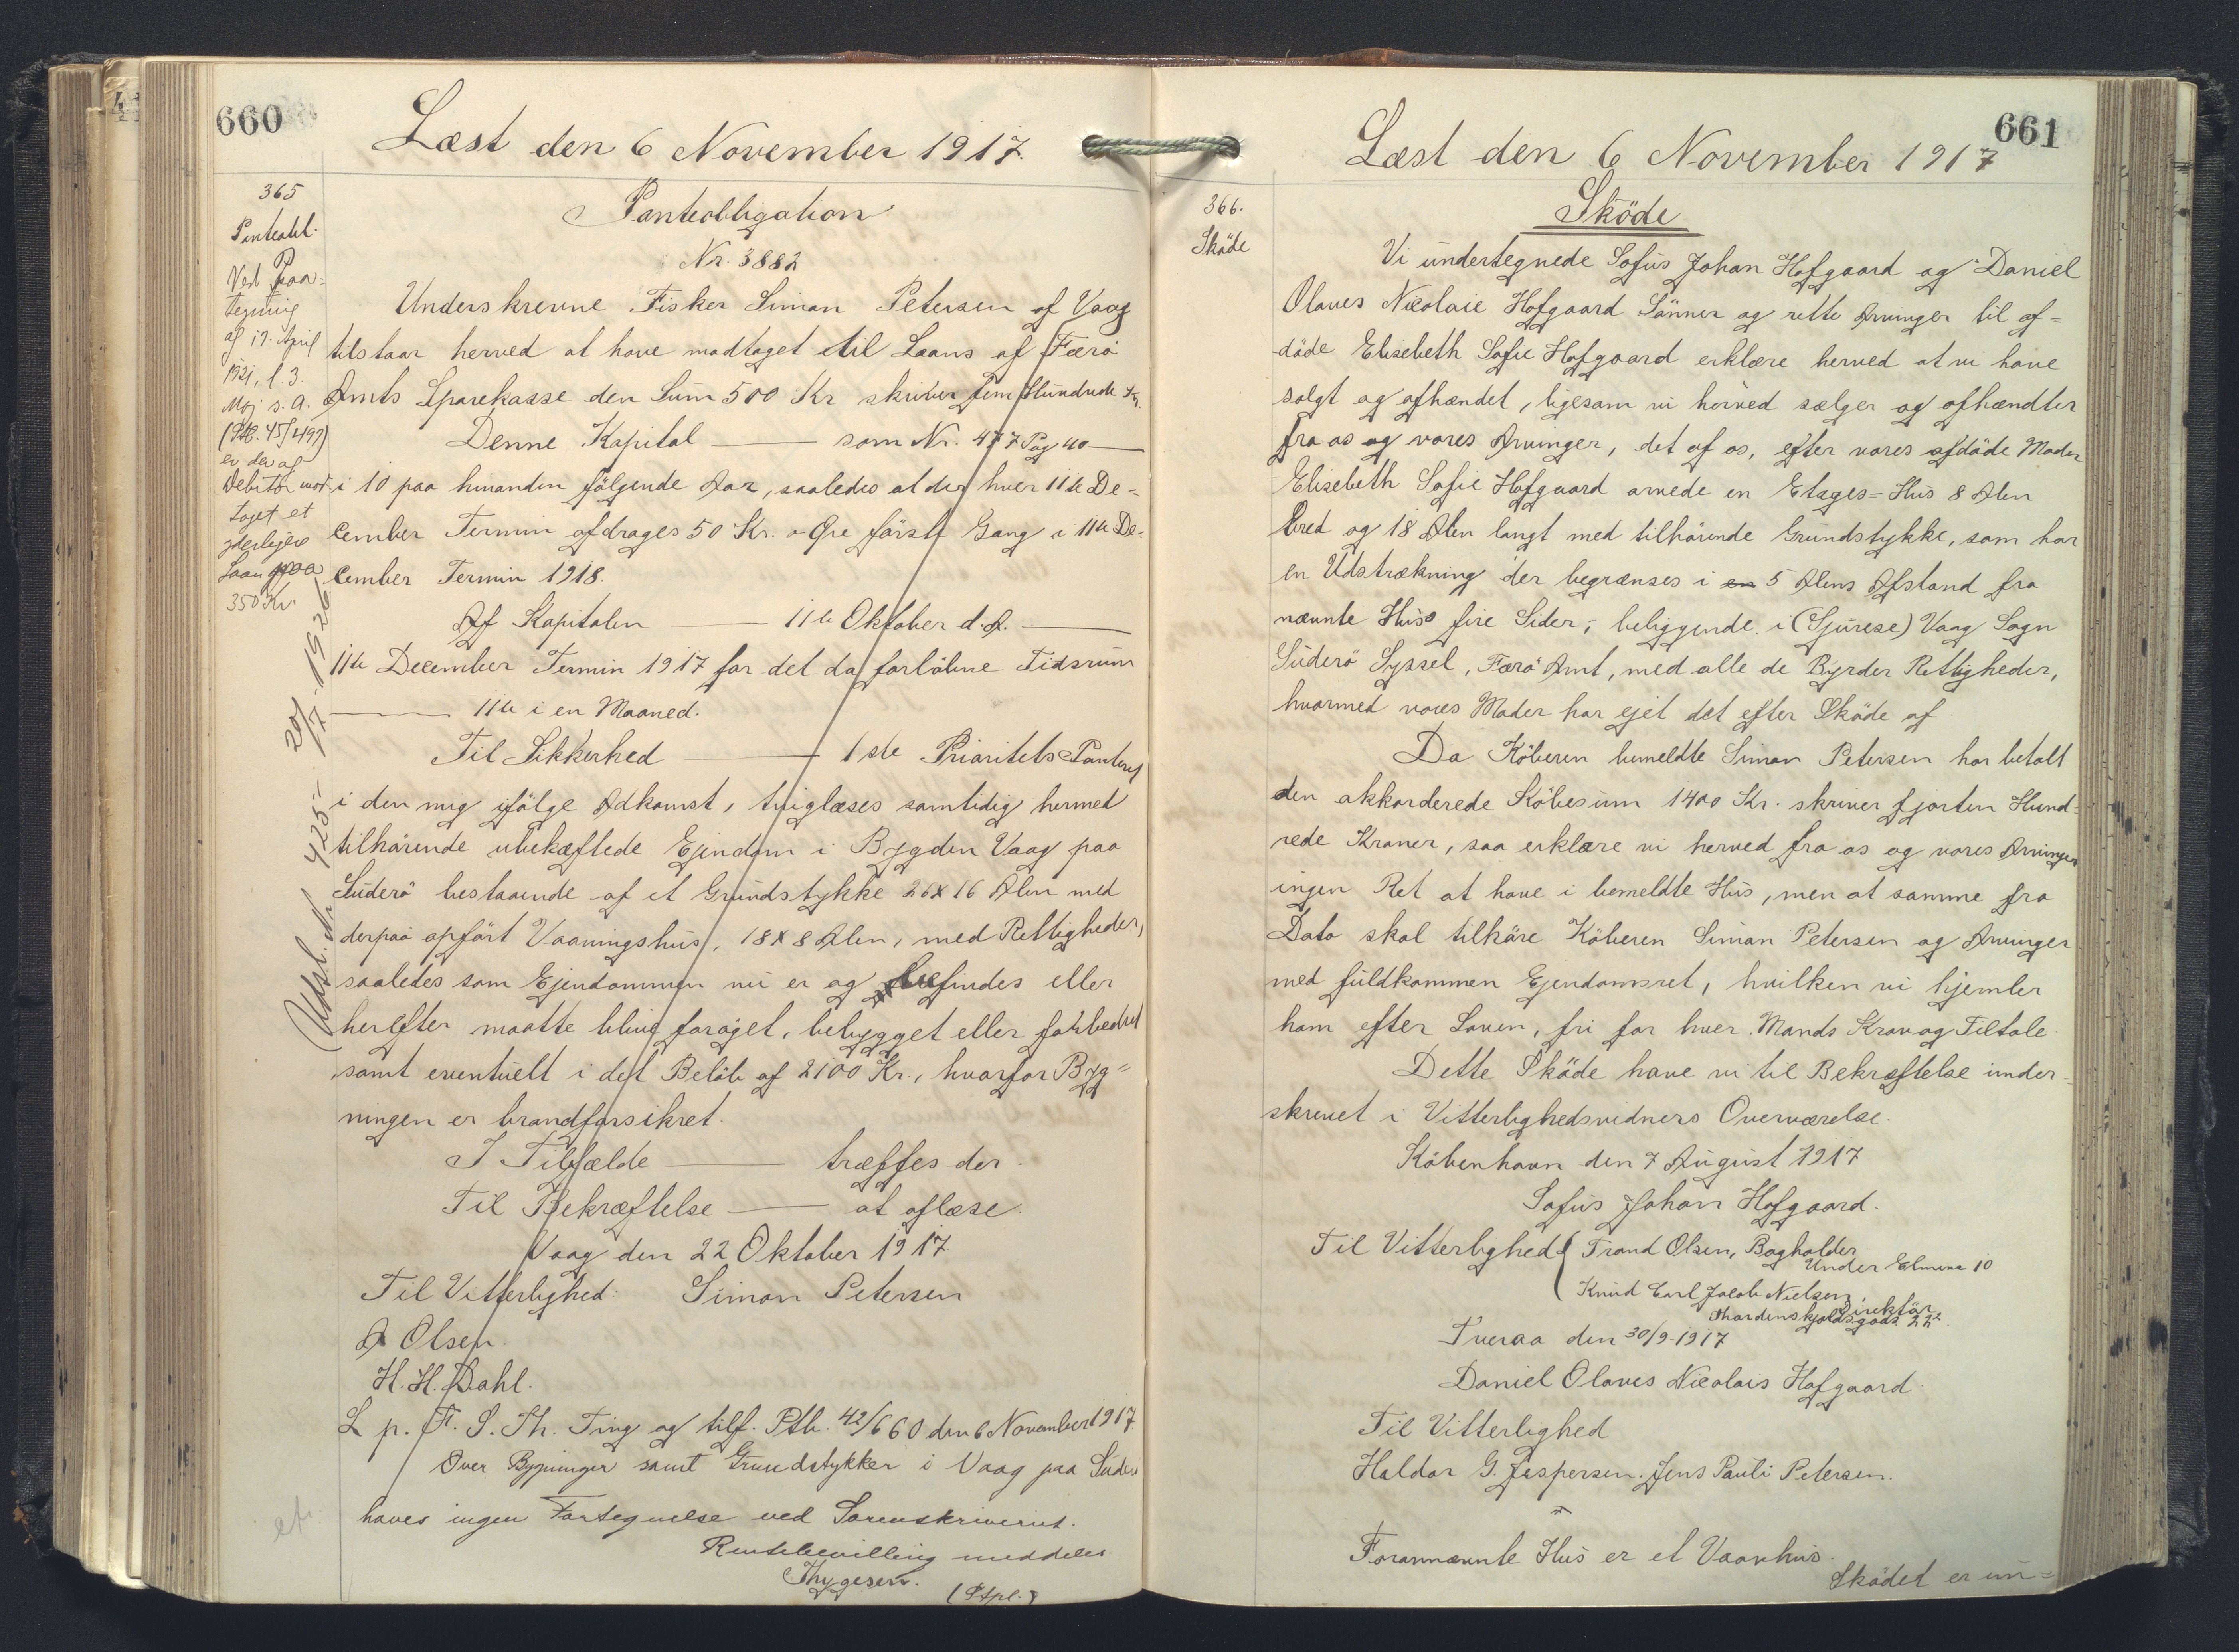 660
Læst den 6 November 1917.
365
Panteobl.
Ved Paa-
tegning
af 17. April
1921, l. 3.
Maj s. A.
(Ptb. 45/499)
er der af
Debitor mod-
taget et
yderligere
Laan
350 Kr
Udsl. Nr 425 - 20/7 - 1926
Panteobligation
Nr. 3882
Underskrevne Fisker Simon Petersen af Vaag
tilstaar herved at have modtaget til Laans af Færö
Amts Sparekasse den Sum 500 Kr skriver fem Hundrede Kr.
Denne Kapital ——— som Nr. 477 Pag 40 —
i 10 paa hinanden fölgende Aar, saaledes at der hver 11te De=
cember Termin afdrages 50 Kr. o Öre förste Gang i 11te De-
cember Termin 1918.
Af Kapitalen ——— 11te Oktober d. A. ———
11te December Termin 1917 for det da forlöbne Tidsrum
——— 11te i en Maaned.
Til Sikkerhed ——— 1ste Prioritets Panteret
i den mig ifölge Adkomst, tinglæses samtidig hermed
tilhörende ubekæftede Ejendom i Bygden Vaag paa
Suderö bestaaende af et Grundstykke 26 x 16 Alen med
derpaa opfört Vaaningshus, 18 x 8 Alen, med Rettigheder,
saaledes som Ejendommen nu er og befindes eller
herefter maatte blive foröget, bebygget eller forbedret
samt eventuelt i det Belöb af 2100 Kr., hvorfor Byg=
ningen er brandforsikret.
I Tilfælde ——— træffes der.
Til Bekræftelse ——— at aflæse.
Vaag den 22 Oktober 1917
Til Vitterlighed: Simon Petersen
A Olsen.
H. H. Dahl.
L p. F. S. Th. Ting og tilf. Ptb. 42/660 den 6 November 1917
Over Bygninger samt Grundstykker i Vaag paa Suderö
haves ingen Fortegnelse ved Sorenskriveriet.
Rentebevilling meddeles
Thygesen.
(Stpl.)
661
Læst den 6 November 1917
366.
Sköde
Sköde
Vi undertegnede Sofus Johan Hofgaard og Daniel
Olaves Nicolaie Hofgaard Sönner og rette Arvinger til af=
döde Elisebeth Sofie Hofgaard erklære herved at vi have
solgt og afhændet, ligesom vi herved sælger og afhændter
fra os og vores Arvinger, det af os, efter vores afdöde Moder
Elisebeth Sofie Hofgaard arvede en Etages=Hus 8 Alen
bred og 18 Alen langt med tilhörende Grundstykke, som har
en Udstrækning der begrænses i en 5 Alens Afstand fra
nævnte Huse fire Sider; beliggende i (Sjurese) Vaag Sogn
Suderö Syssel, Færö Amt, med alle de Byrder Rettigheder,
hvormed vores Moder har ejet det efter Sköde af
Da Köberen bemeldte Simon Petersen har betalt
den akkorderede Köbesum 1400 Kr. skriver fjorten Hund-
rede Kroner, saa erklære vi herved fra os og vores Arvinger
ingen Ret at have i bemeldte Hus, men at samme fra
Dato skal tilhöre Köberen Simon Petersen og Arvinger
med fuldkommen Ejendomsret, hvilken vi hjemler
ham efter Loven, fri for hver Mands Krav og Tiltale.
Dette Sköde have vi til Bekræftelse under-
skrevet i Vitterlighedsvidners Overværelse.
Köbenhavn den 7 August 1917
Sofus Johan Hofgaard.
Til Vitterlighed { Trond Olsen, Bogholder
Under Elmene 10
Knud Carl Jacob Nielsen,
Direktör
Thordenskjoldsgade 22².
Tveraa den 30/9-1917
Daniel Olaves Nicolais Hofgaard
Til Vitterlighed
Haldor G. Jespersen. Jens Pauli Petersen.
Forannævnte Hus er et Vaanhus.
Sködet er un=